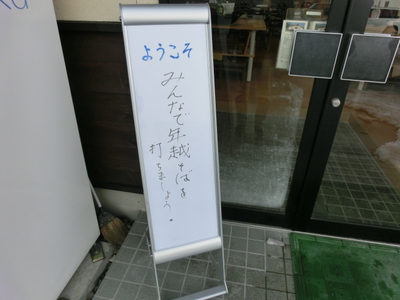 ようこそ
みんなで年越そばを
打ちましょう。